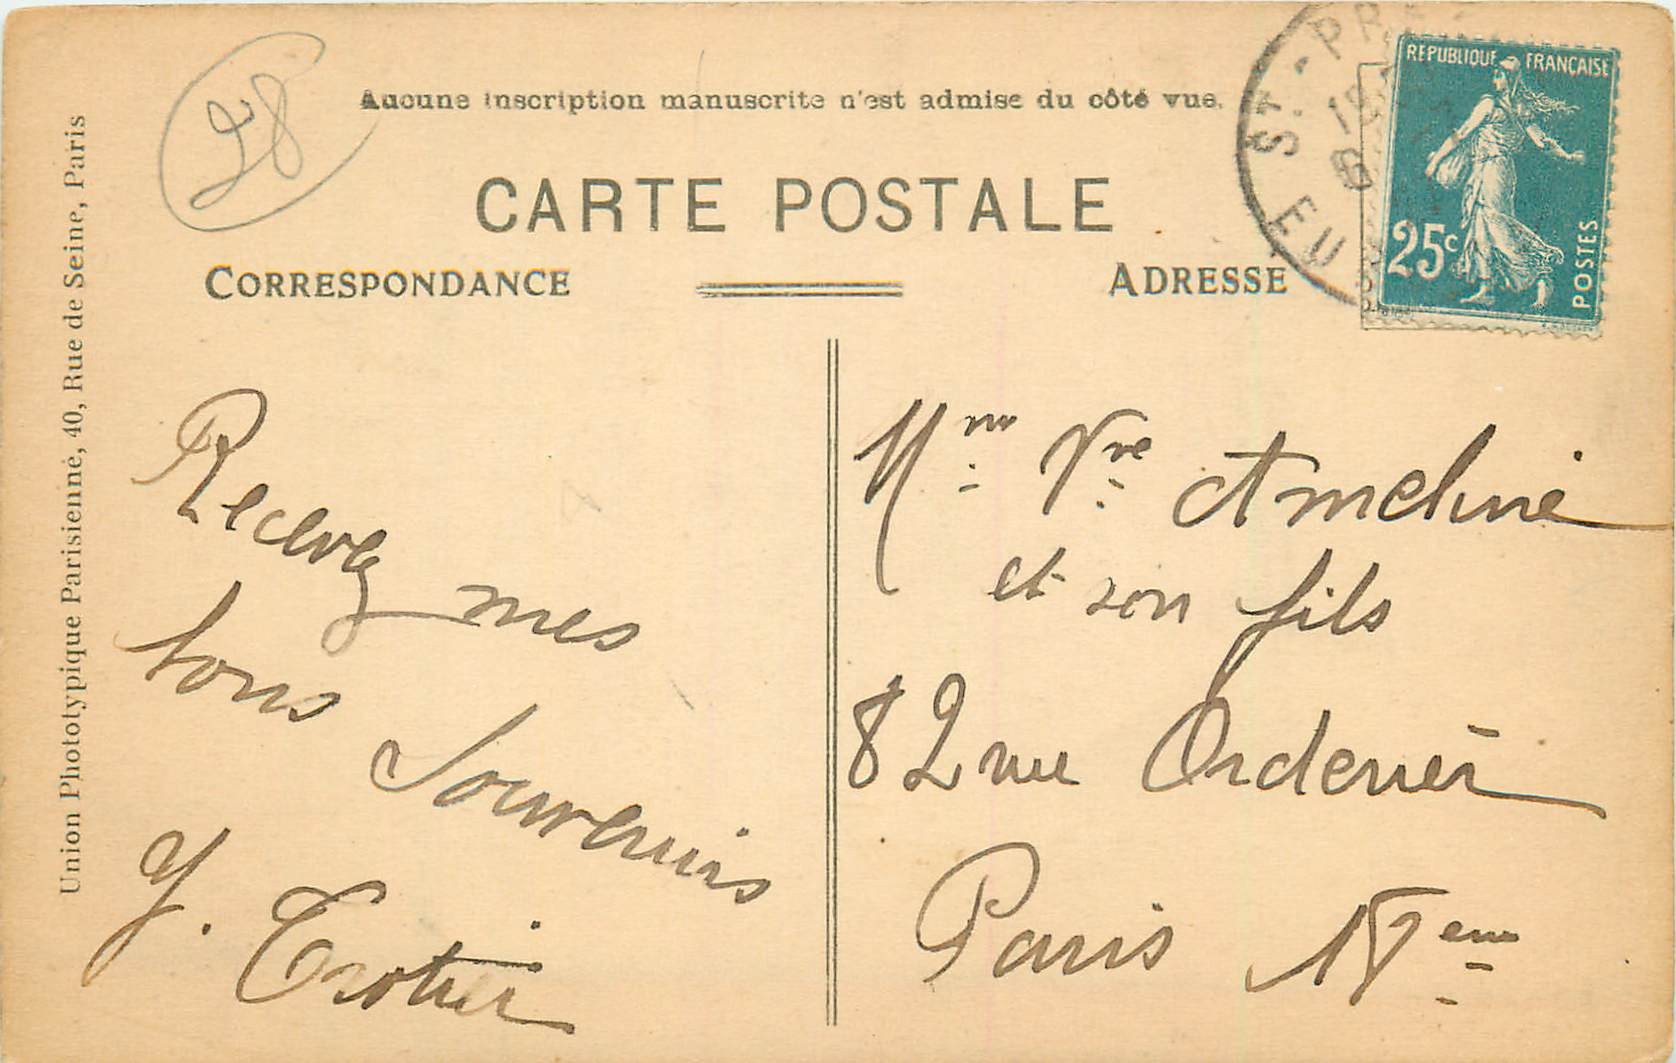 28
Aucune inscription manuscrite n'est admise du côté vue.
CARTE POSTALE
CORRESPONDANCE
ADRESSE
REPUBLIQUE FRANÇAISE
25c
POSTES
ST-PR
EU
Union Phototypique Parisienne, 40, Rue de Seine, Paris
Recevez mes
bons Souvenirs
Y. Trotier
Mme Vve Ameline
et son fils
82 rue Ordener
Paris 18eme